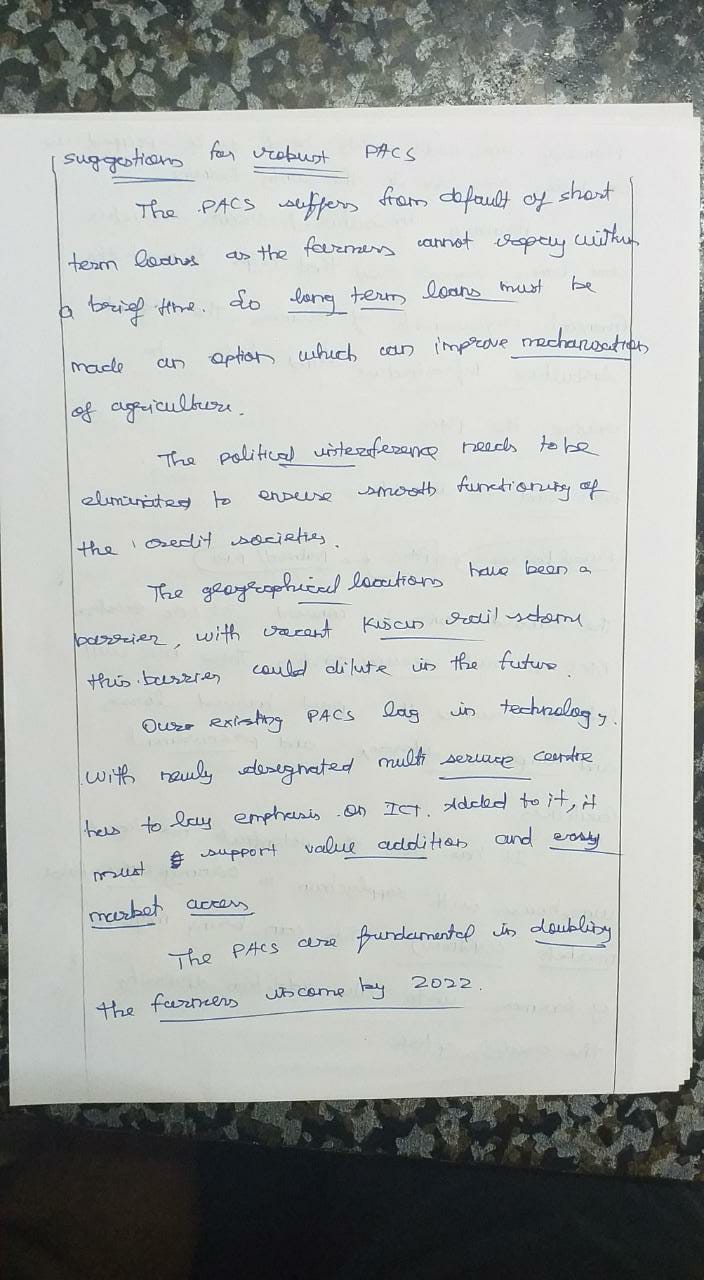 suggestions for robust PACS
The PACS suffers from default of short
term loans as the farmers cannot repay within
a brief time. So long term loans must be
made an option which can improve mechanisation
of agriculture.
The political interference needs to be
eliminated to ensure smooth functioning of
the credit societies.
The geographical locations have been a
barrier, with recent Kisan rail scheme
this barrier could dilute in the future.
Our existing PACS lag in technology.
With newly designated multi service centre
has to lay emphasis on ICT. Added to it, it
must support value addition and easy
market access
The PACS are fundamental in doubling
the farmers income by 2022.